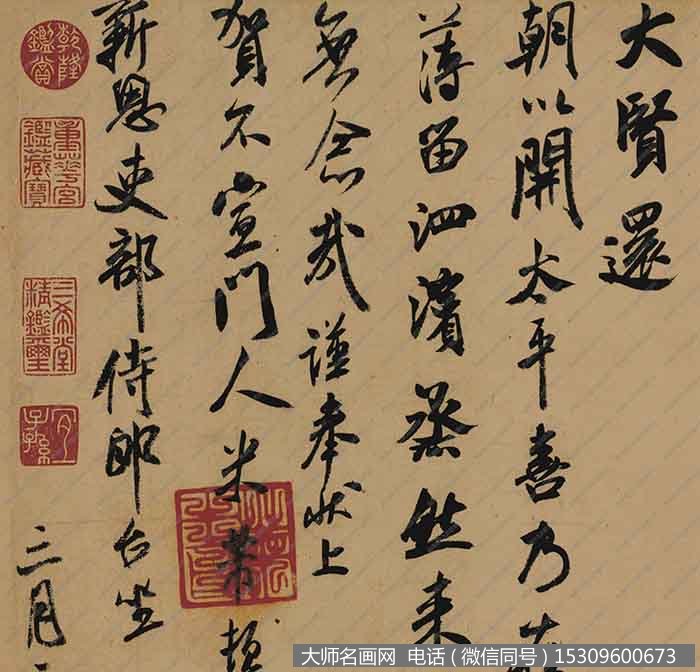 大賢還
朝以開太平喜乃
薄留泗濱蒸然来
無念哉謹奉状上
賀不宣門人米芾頓
新恩吏部侍郎台坐
三月
乾隆鑑賞
重華宮鑑藏寶
三希堂精鑑璽
宜子孫
大师名画网 电话(微信同号)15309600673